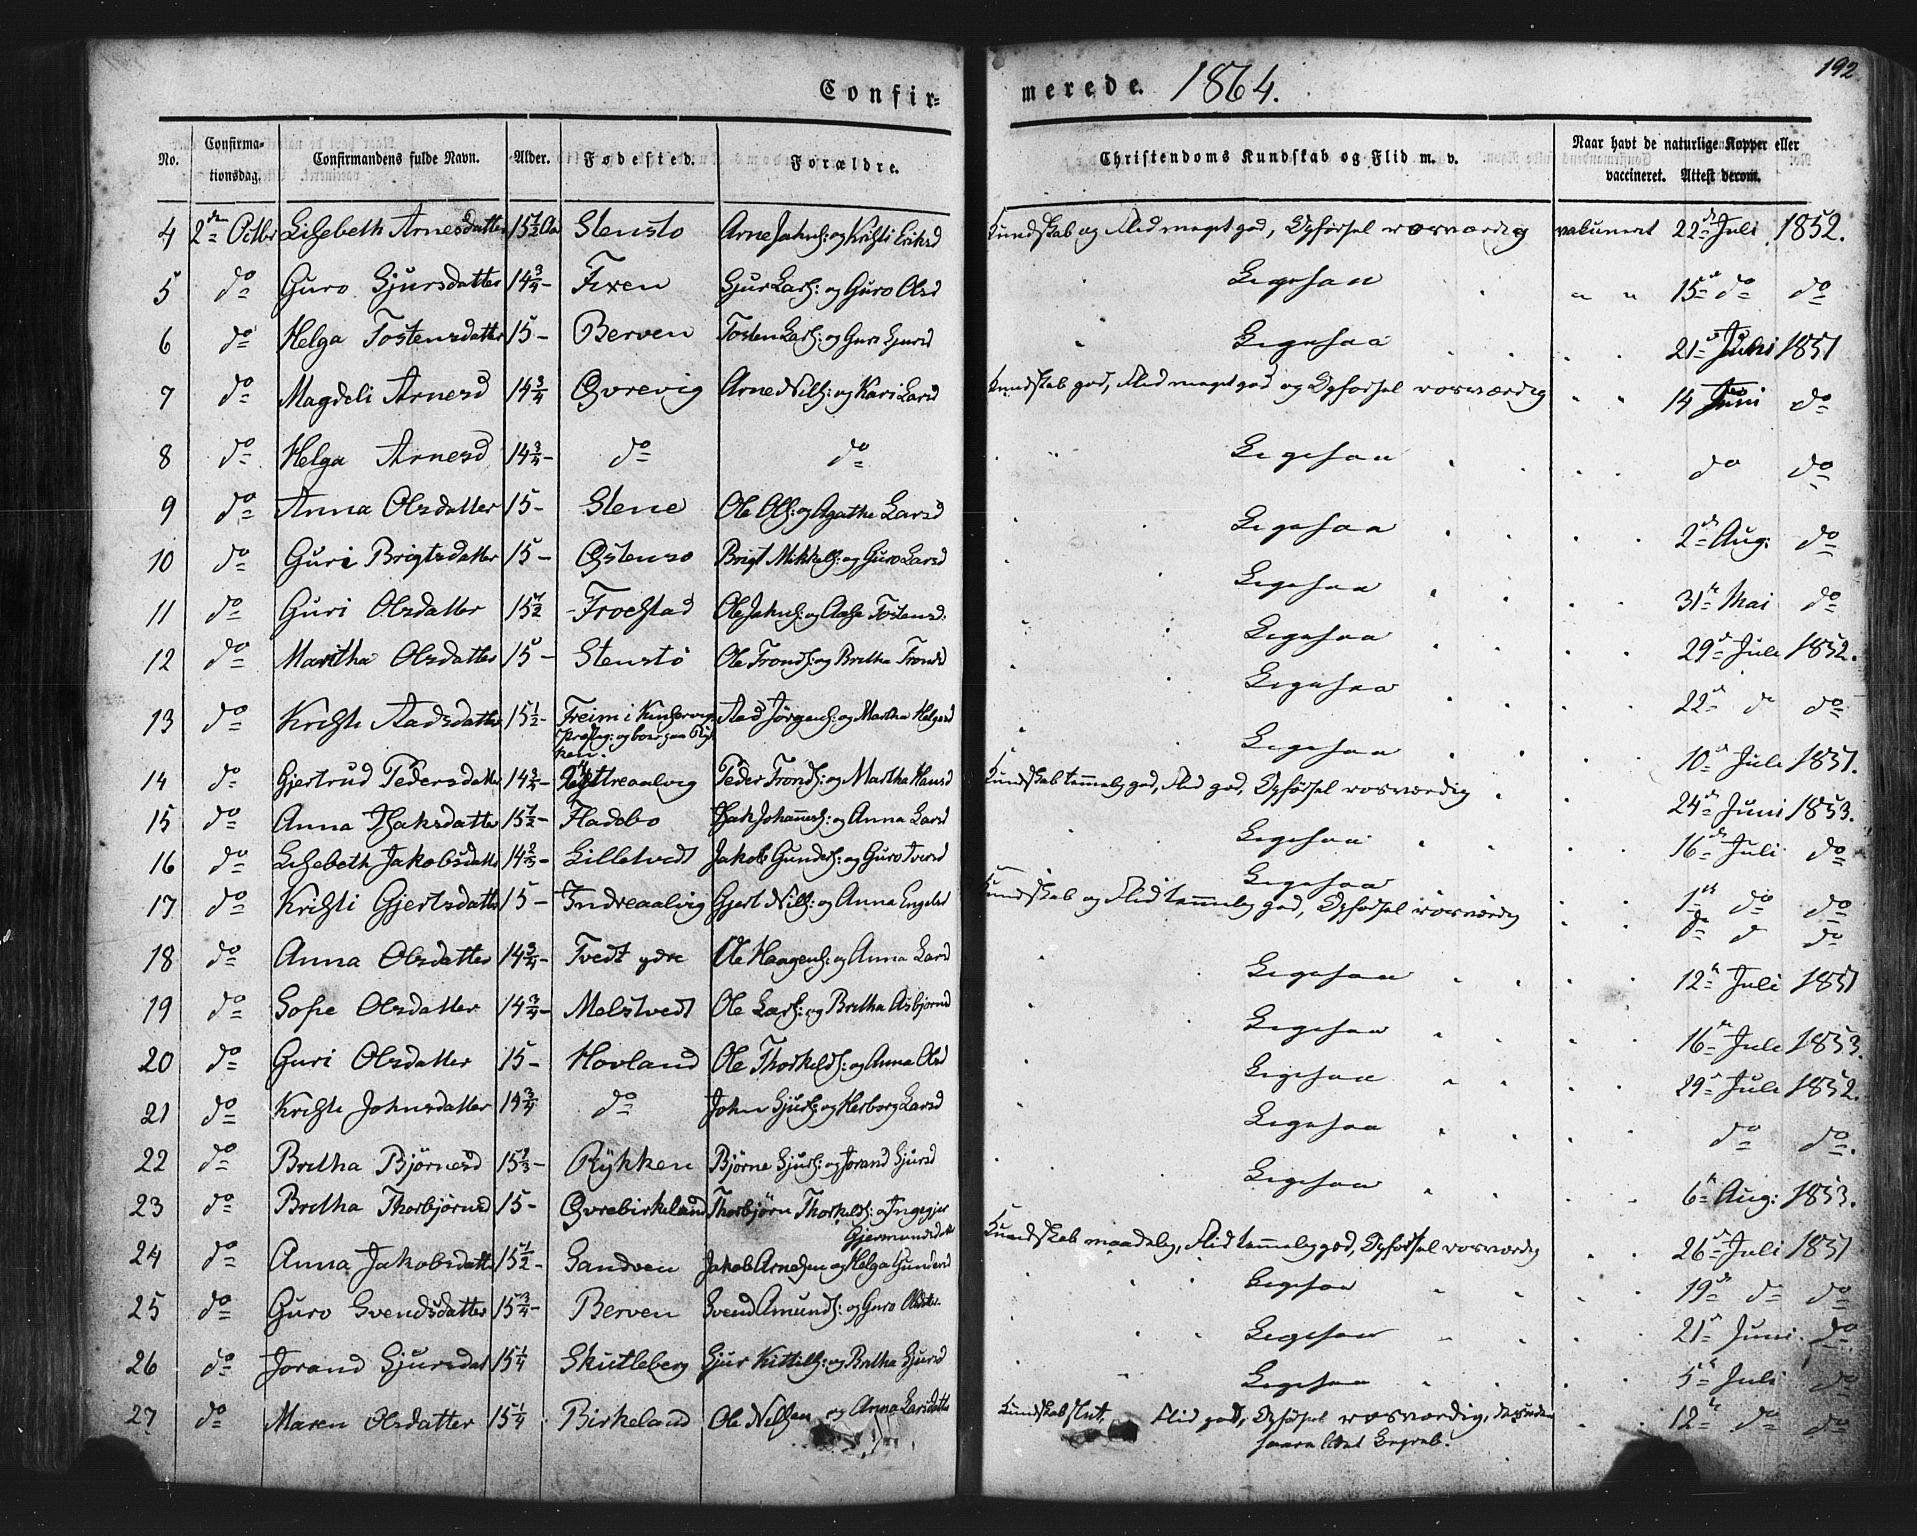 192
Confir-
merede. 1864.
No.
Confirma-
tionsdag.
Confirmandens fulde Navn.
Alder.
Fødested.
Forældre.
Christendoms Kundskab og Flid m. v.
Naar havt de naturlige Kopper eller
vaccineret. Attest derom.
4 2den Octbr Lisbeth Arnesdatter 15½ Aar Stensto Arne Jahns: og Kristi Eriksd Kundskab og Flid meget god, Opførsel rosværdig vakcineret 22de Juli 1852.
5 do Guro Sjursdatter 14¾ - Fixen Sjur Lars: og Guro Olsd Ligesaa " " 15de do do
6 do Helga Tostensdatter 15 - Berven Tosten Lars: og Guri Sjursd Ligesaa 21de 1851
7 do Magdeli Arnesd 14¾ Øvrevig Arne Nils: og Kari Larsd Kundskab god, Flid meget god og Opførsel rosværdig 14 Juni do
8 do Helga Arnesd 14¾ - do do Ligesaa do do
9 do Anna Olsdatter 15 - Stene Ole Ols: og Agathe Larsd Ligesaa 2de Aug: do
10 do Guri Brigtsdatter 15 - Østensø Brigt Mikkels: og Guro Larsd Ligesaa 31te Mai do
11 do Guri Olsdatter 15½ - Froestad Ole Jahns: og Aase Tostensd: Ligesaa 29de Juli 1852.
12 do Martha Olsdatter 15 - Stenstø Ole Tronds: og Britha Trondsd Ligesaa 22de do do
13 do Kristi Aadsdatter 15½ - Freim i Kinservig Aad Jørgens: og Martha Helgesd Ligesaa 10de Juli 1851.
Præsteg: og boer paa Ryk
ken.
14 do Gjertrud Pedersdatter Yttreaalvig Peder Tronds: og Martha Hansd Kundskab temmelig god, Flid god, Opførsel rosværdig 24de Juni 1853.
15 do Anna Isaksdatter 15½ - Fladebo Isak Johannes: og Anna Larsd Ligesaa 16de Juli do
16 do Lisbeth Jakobsdatter Lilletvedt Jakob Gunders: og Guro Iversd Ligesaa 1ste do do
17 do Kristi Gjertsdatter 15 - Indreaalvig Gjert Nils: og Anna Engelsd Kundskab og Flid temmelig god, Opførsel rosværdig do do do
18 do Anna Olsdatter 14¾ - Tvedt ydre Ole Haagens: og Anna Larsd Ligesaa 12te Juli 1851
19 do Sofie Olsdatter 14¾ - Melstvedt Ole Lars: og Britha Asbjørnsd Ligesaa 16de Juli 1853.
20 do Guri Olsdatter 15 - Hovland Ole Thorkelds: og Anna Olsd Ligesaa 29de Juli 1852.
21 do Kristi Johnsdatter 14¾ do John Sjurs: og Herborg Larsd Ligesaa do do.
22 do Britha Bjørnesd Rykken Bjørne Sjurs: og Jorand Sjursd Ligesaa 6te Aug: 1853.
23 do Britha Thorbjørnsd 15 - Øvrebirkeland Thorbjørn Thorkelds: og Ingegjer
Gjermundsdatter Kundskab maadelig, Flid temmelig god, Opførsel rosværdig 26de Juli 1851
24 do Anna Jakobsdatter 15½ - Sandven Jakob Arnesen og Helga Gundersd Ligesaa 19de do do
25 do Guro Svendsdatter 15¾ - Berven Svend Amunds: og Guro Olsdtr. Ligesaa 21de Juni do
26 do Jorand Sjursdat 15¼ Skutleberg Sjur Kittils: og Britha Sjursd Ligesaa 5te Juli do
27 do Maren Olsdatter 15¼ Birkeland Ole Nilsen og Anna Larsdatter Kundskab slet, Flid god, Opførsel rosværdig, desuden 12te do do